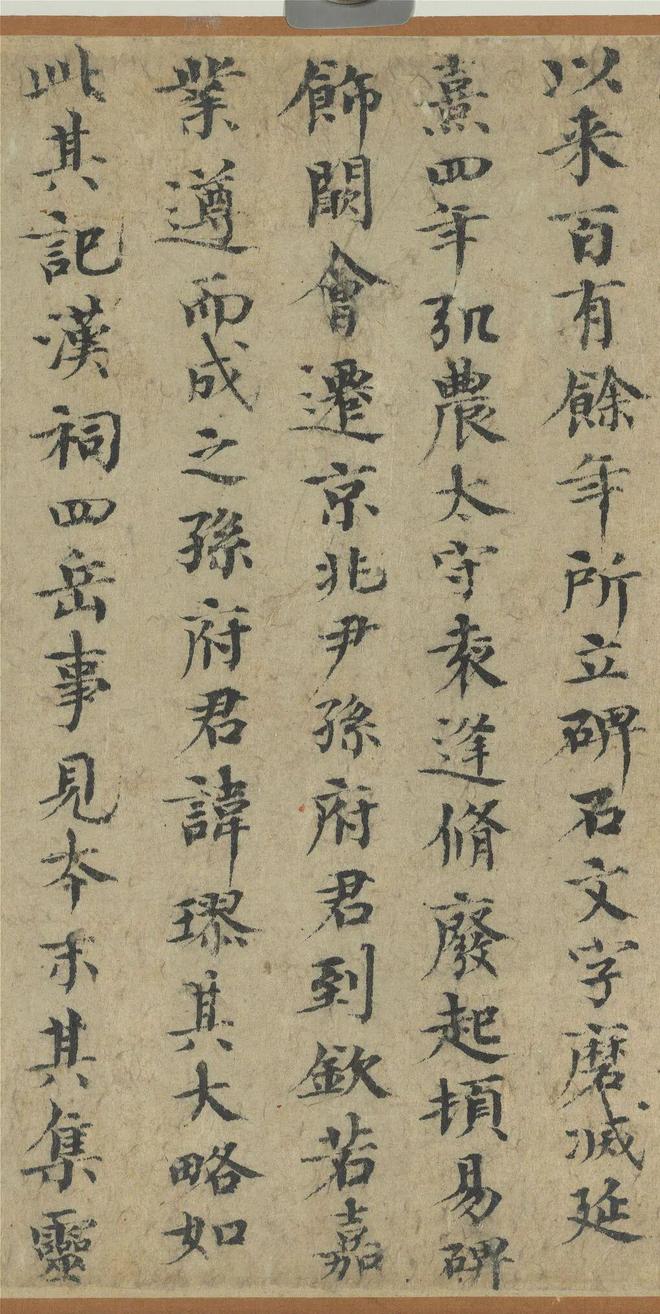 以来百有餘年所立碑石文字磨滅延
熹四年弘農太守袁逢脩廢起頓易碑
飾闕會遷京兆尹孫府君到欽若嘉
業遵而成之孫府君諱璆其大略如
此其記漢祠四岳事見本末其集靈